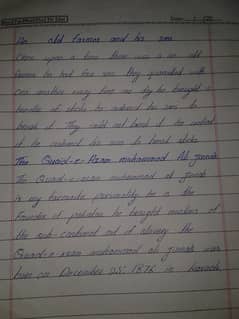 An old farmer and his son
Once upon a time there was is an old
farmer he had five son they quareled with
one another every time one day he brought a
bundle of sticks he ordered his sons to
break it They could not break it he untied
it he ordered his son to break sticks
The Quaid-e-Azam muhammad Ali jinnah
The Quaid-e-azam muhammad ali jinnah
is my favourite personality he is the
founder of pakistan he brought muslims of
the sub-continent out of slavery the
Quaid-e-azam muhammad ali jinnah was
born on December 25, 1876 in karachi